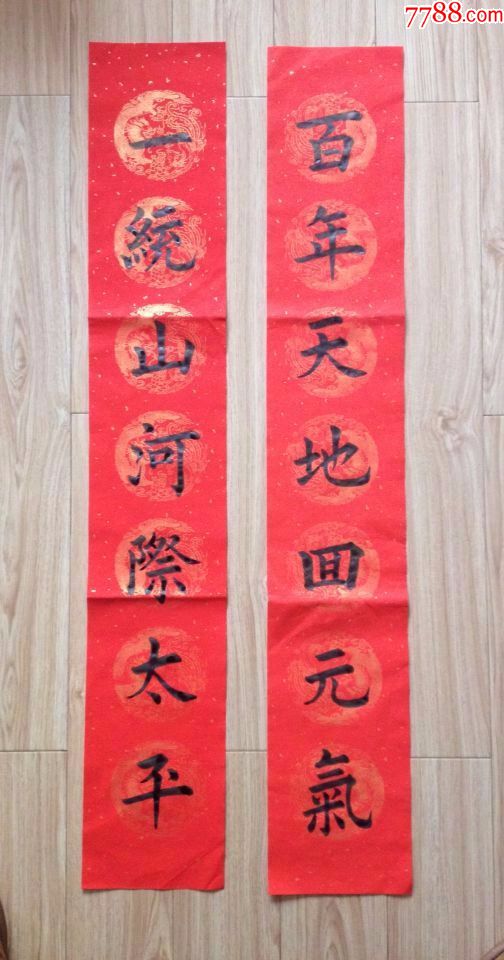 7788.com
百年天地囬元氣
一統山河際太平